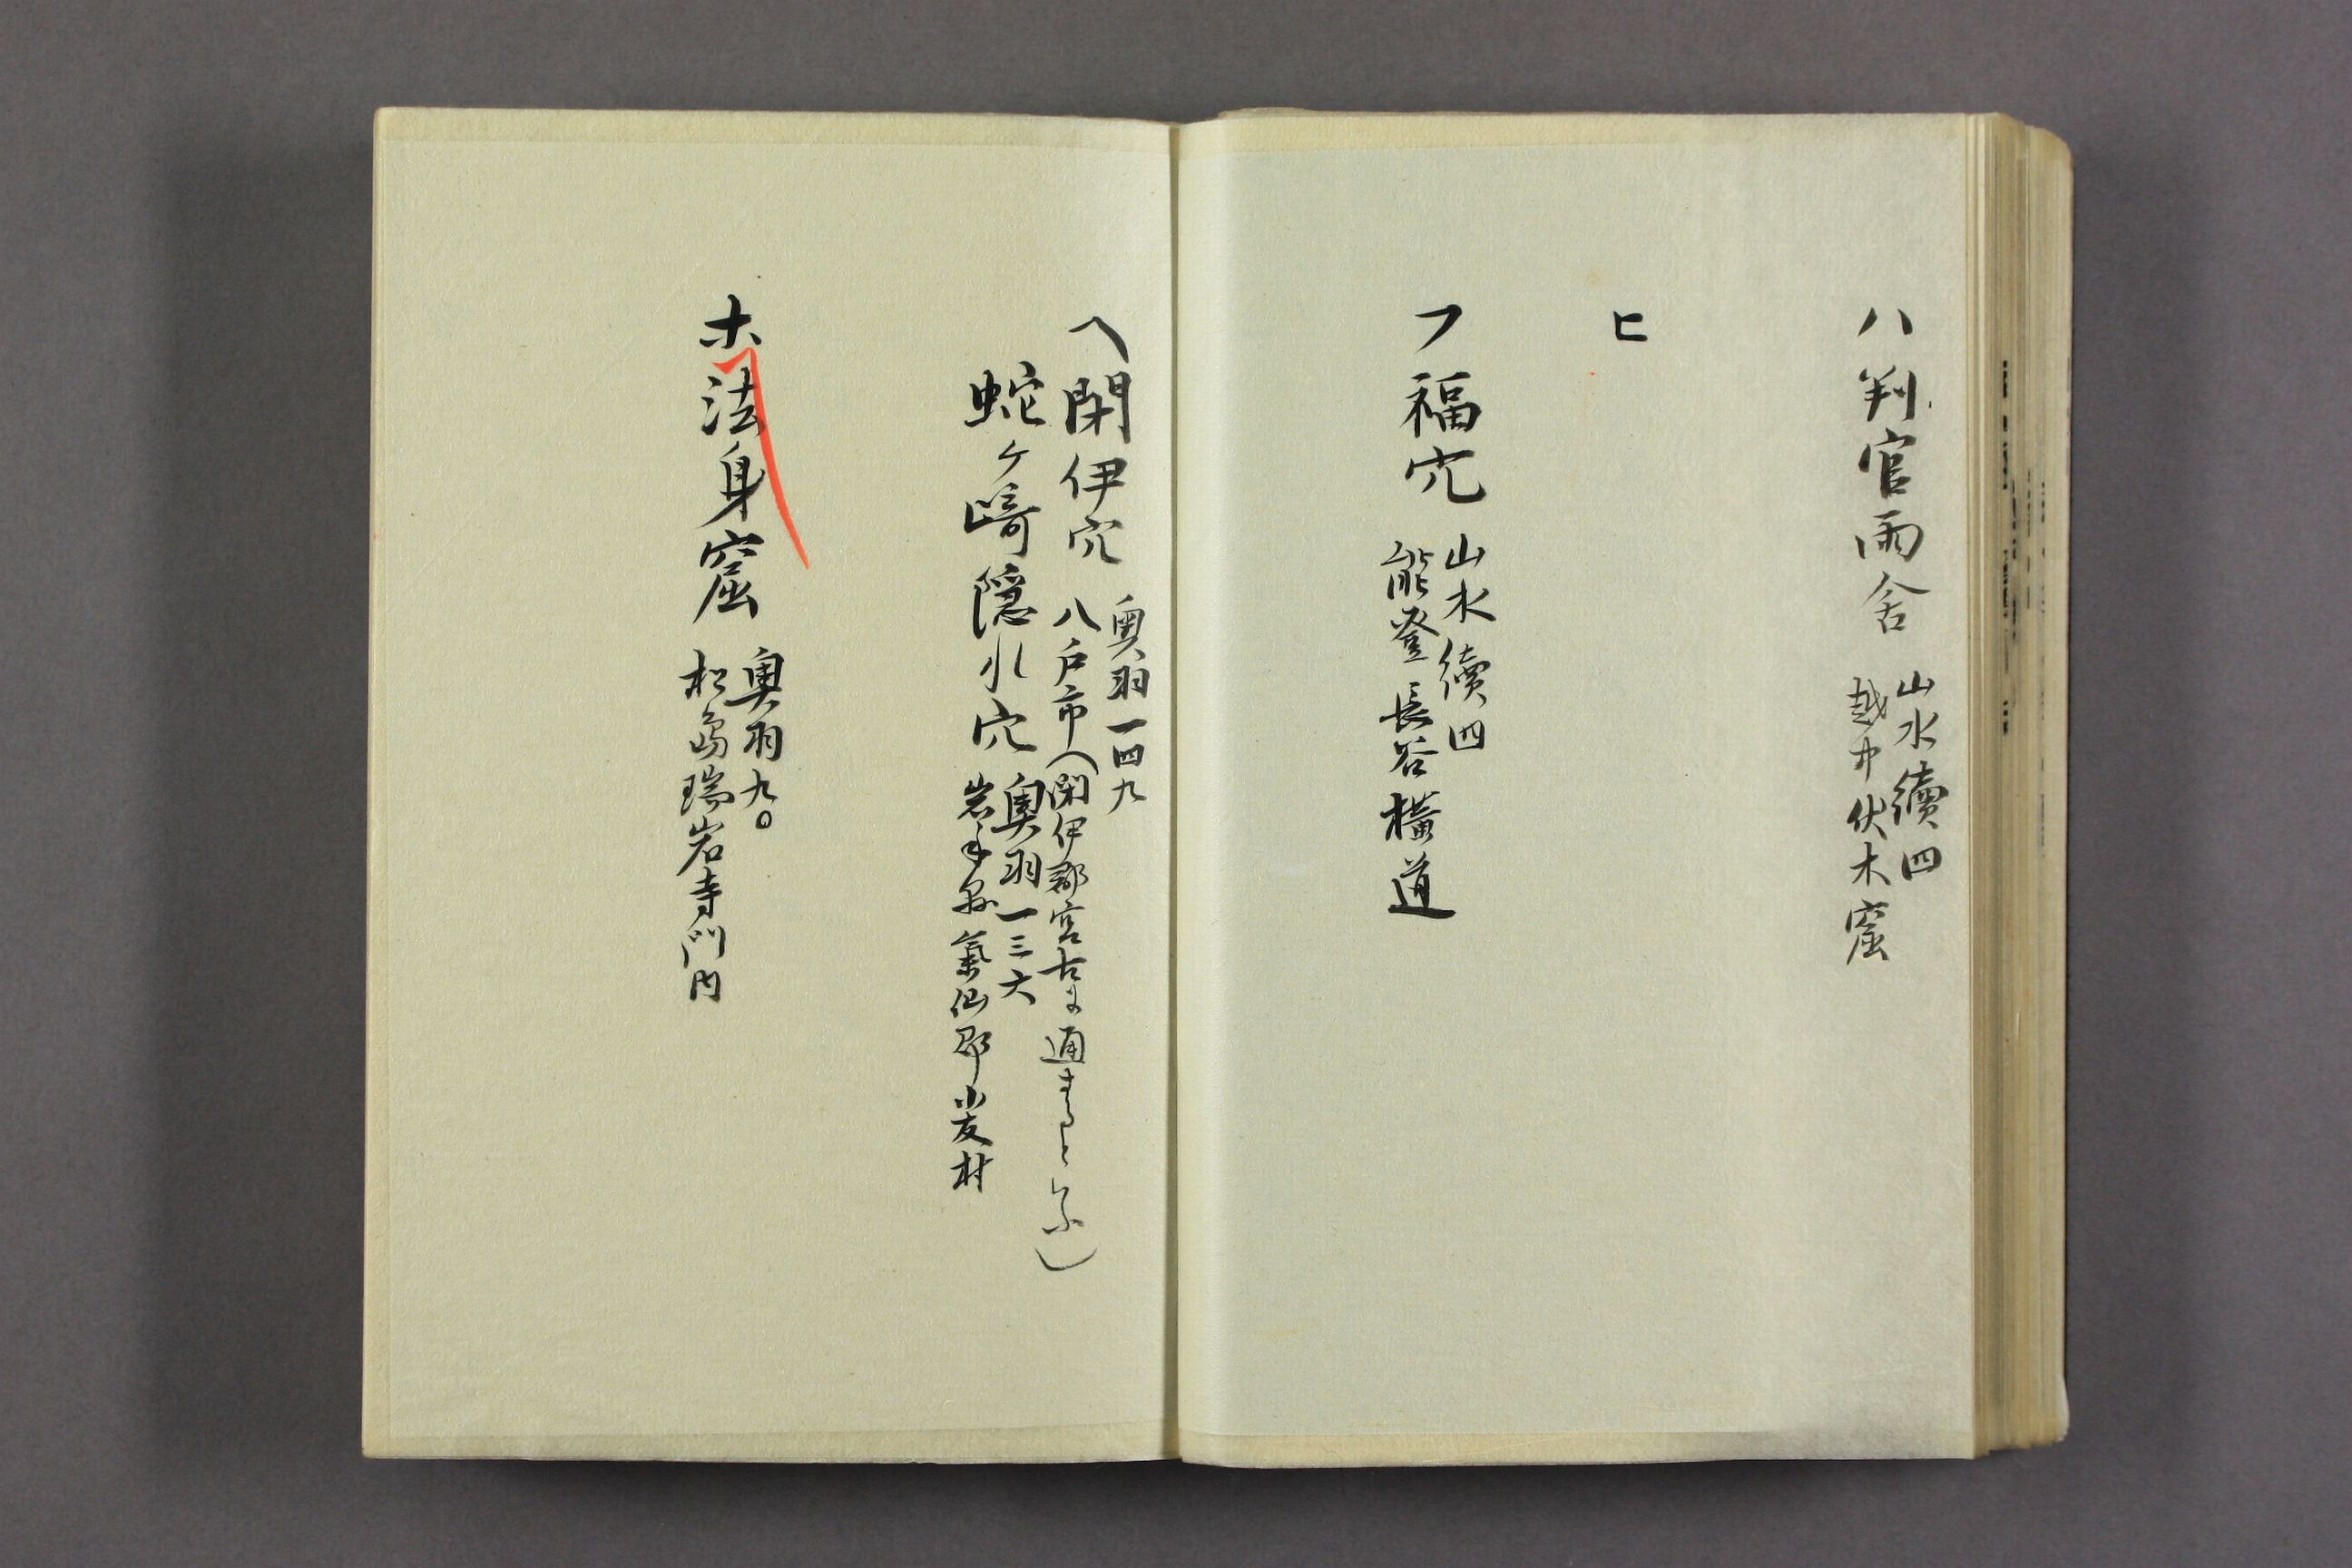 ハ 判官雨舍
山水續四
越中伏木窟
ヒ
フ 福穴
山水續四
能登長谷橫道
ヘ 閉伊穴
奧羽一四九
八戶市(閉伊郡宮古まで通ずるといふ)
蛇ヶ﨑隠れ穴
奧羽一三六
岩手縣氣仙郡小友村
ホ 法身窟
奧羽九〇
松島瑞岩寺門内